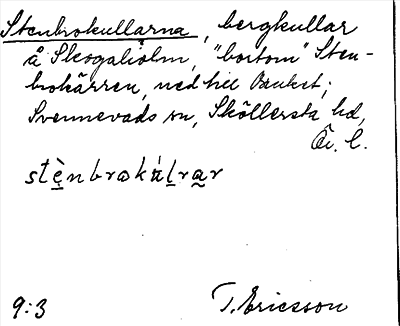 Stenbrokullarna, bergkullar
å Skogaholm, "bortom" Sten-
brokärren, ned till Bauket;
Svennevads sn, Sköllersta hd,
Ör. l.
stè̤nbrokúḻra̤r
9:3
T. Ericsson